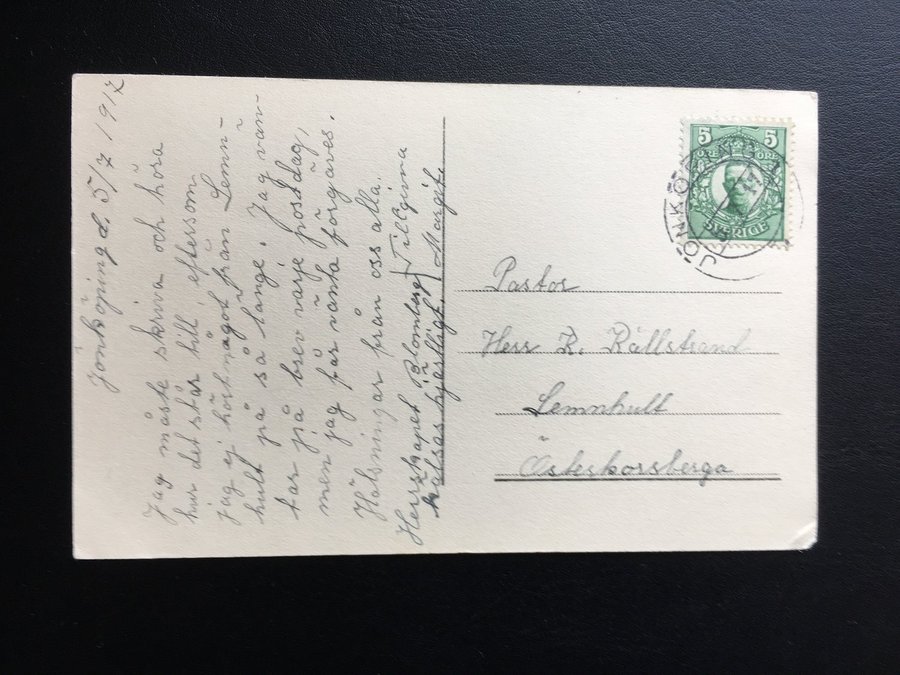 Jönköping d. 5/7 1917
Jag måste skriva och höra
hur det står till, eftersom
jag ej hört något från Lemn-
hult på så länge. Jag vän-
tar på brev varje postdag,
men jag får vänta förgäves.
Hälsningar från oss alla.
Herrskapet Blomberg Tillgivna
hälsas hjärtligt. Margit.
5 5
ÖRE ÖRE
SVERIGE
JÖNKÖPING
Pastor
Herr K. Källstrand
Lemnhult
Österkorsberga